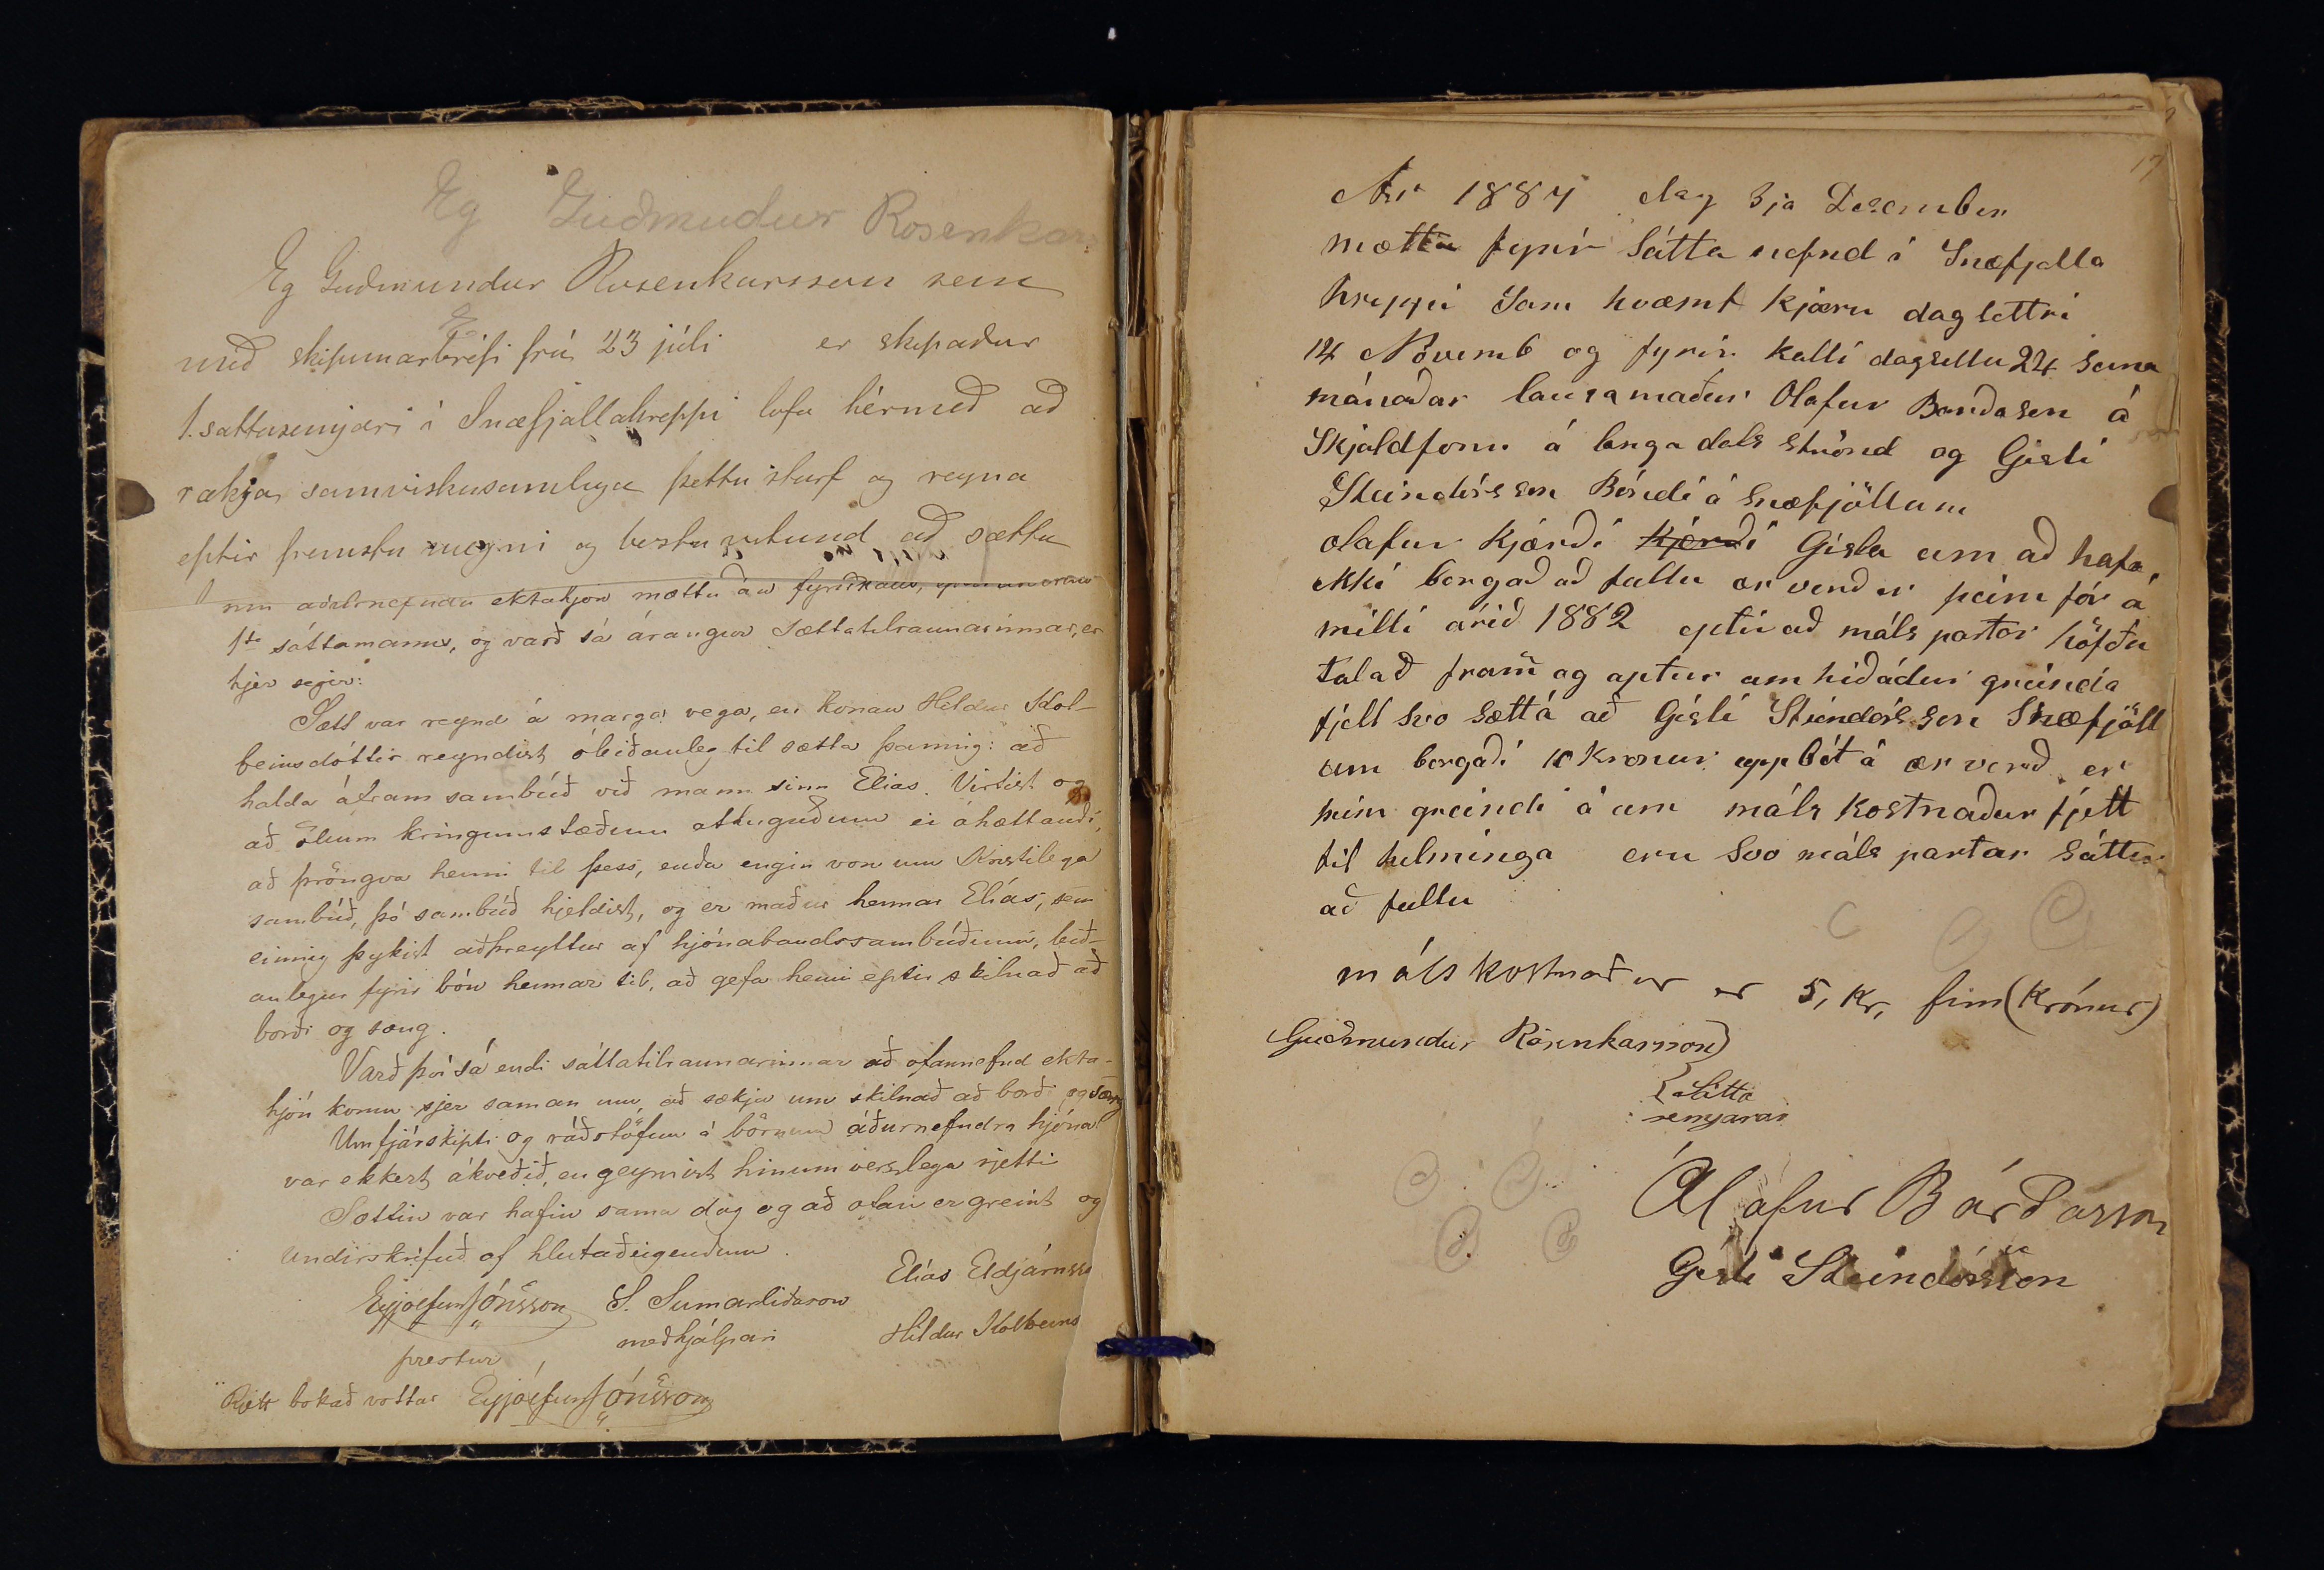 Eg Guðmudur Rosenkar
Eg Guðmundur Rosenkarsson sem
með skipunarbréfi frá 23 júli er skipaður
1. sattasemjari i Snæfjallahreppi lofa hérmeð að
rækja samviskusamlega þetta starf og reyna
eptir fremstu megni og bestu vitund að sætta
nú aðalnefndu ektahjón mættu áu fyrirkalls,
1ste sáttamanns, og varð sá árangur sættatilraunarinnar, er
hjer segir:
Sætt var reynd á marga vega, en konan Hildur Kol-
beinsdóttir reyndist óleiðanleg til sætta þannig: að
halda áfram sambúð við mann sinn Elias. Virtist og
að öllum kringumstæðum athuguðum ei áhættandi,
að þröngva henni til þess, enda engin von um Kristilega
sambúð, þó sambúð hjeldist, og er maður hennar Elías, sem
einnig þykist aðþreyttur af hjónabandssambúðinni, leið-
anlegur fyrir bón hennar til, að gefa henni eptir skilnað að
borði og sæng.
Varð því sá endi sáttatilraunarinnar að ofannefnd ekta-
hjón komu sjer saman um, að sækja um skilnað að borð og sæng
Um fjárskipti og ráðstöfun á börnum áðurnefndra hjóna
var ekkert ákveðið, en geymist hinum verslega rjetti
Sættin var hafin sama dag og að ofan er greint og
undirskrifuð af hlutaðeigendum.
Eyjólfur Jónsson S. Sumarliðason Elías Eldjárnsso
prestur meðhjálpari Hildur Kolbeins
Rjett bokað vottar Eyjólfur Jónsson
17
Ár 1884 dag 3ja Desember
mættu fyrir Sátta nefnd i Snæfjalla
hreppi Sam hvæmt kjæru dagsettri
14 Növemb og fyrir kalli dagsettu 24 sama
mánaðar lausamaður Olafur Bárðason á
Skjaldfonn á langadals strönd og Gisli
Steindórsson Bóndi á Snæfjöllum
olafur kjærði kjærði Gisla um að hafa
ekki borgað að fullu ær verð er þeim fór á
milli árið 1882 eptir að máls partar höfðu
talað fram og aptur um hið áður greinda
fjell svo sætt á að Gisli Steindórsson Snæfjöll
um borgaði 10 kronur uppbót á ær verð er
þeim greindi á um máls kostnaður fjell
til helminga eru svo máls partar sáttir
að fullu
málskostnaður er 5, kr, fim (Krónur)
Guðmundur Rósenkarsson
Sátta
semjarar
Ólafur Bárðarson
Gisli Steindórsson